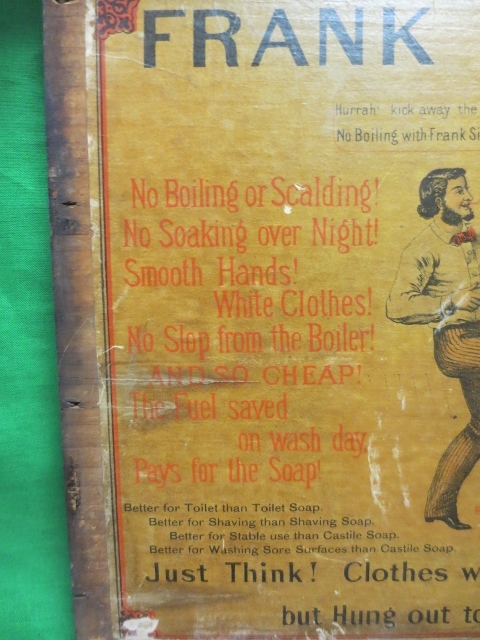 FRANK
Hurrah! kick away the
No Boiling with Frank Si
No Boiling or Scalding!
No Soaking over Night!
Smooth Hands!
White Clothes!
No Slop from the Boiler!
AND SO CHEAP!
The Fuel saved
on wash day,
Pays for the Soap!
Better for Toilet than Toilet Soap.
Better for Shaving than Shaving Soap.
Better for Stable use than Castile Soap.
Better for Washing Sore Surfaces than Castile Soap.
Just Think! Clothes w
but Hung out to